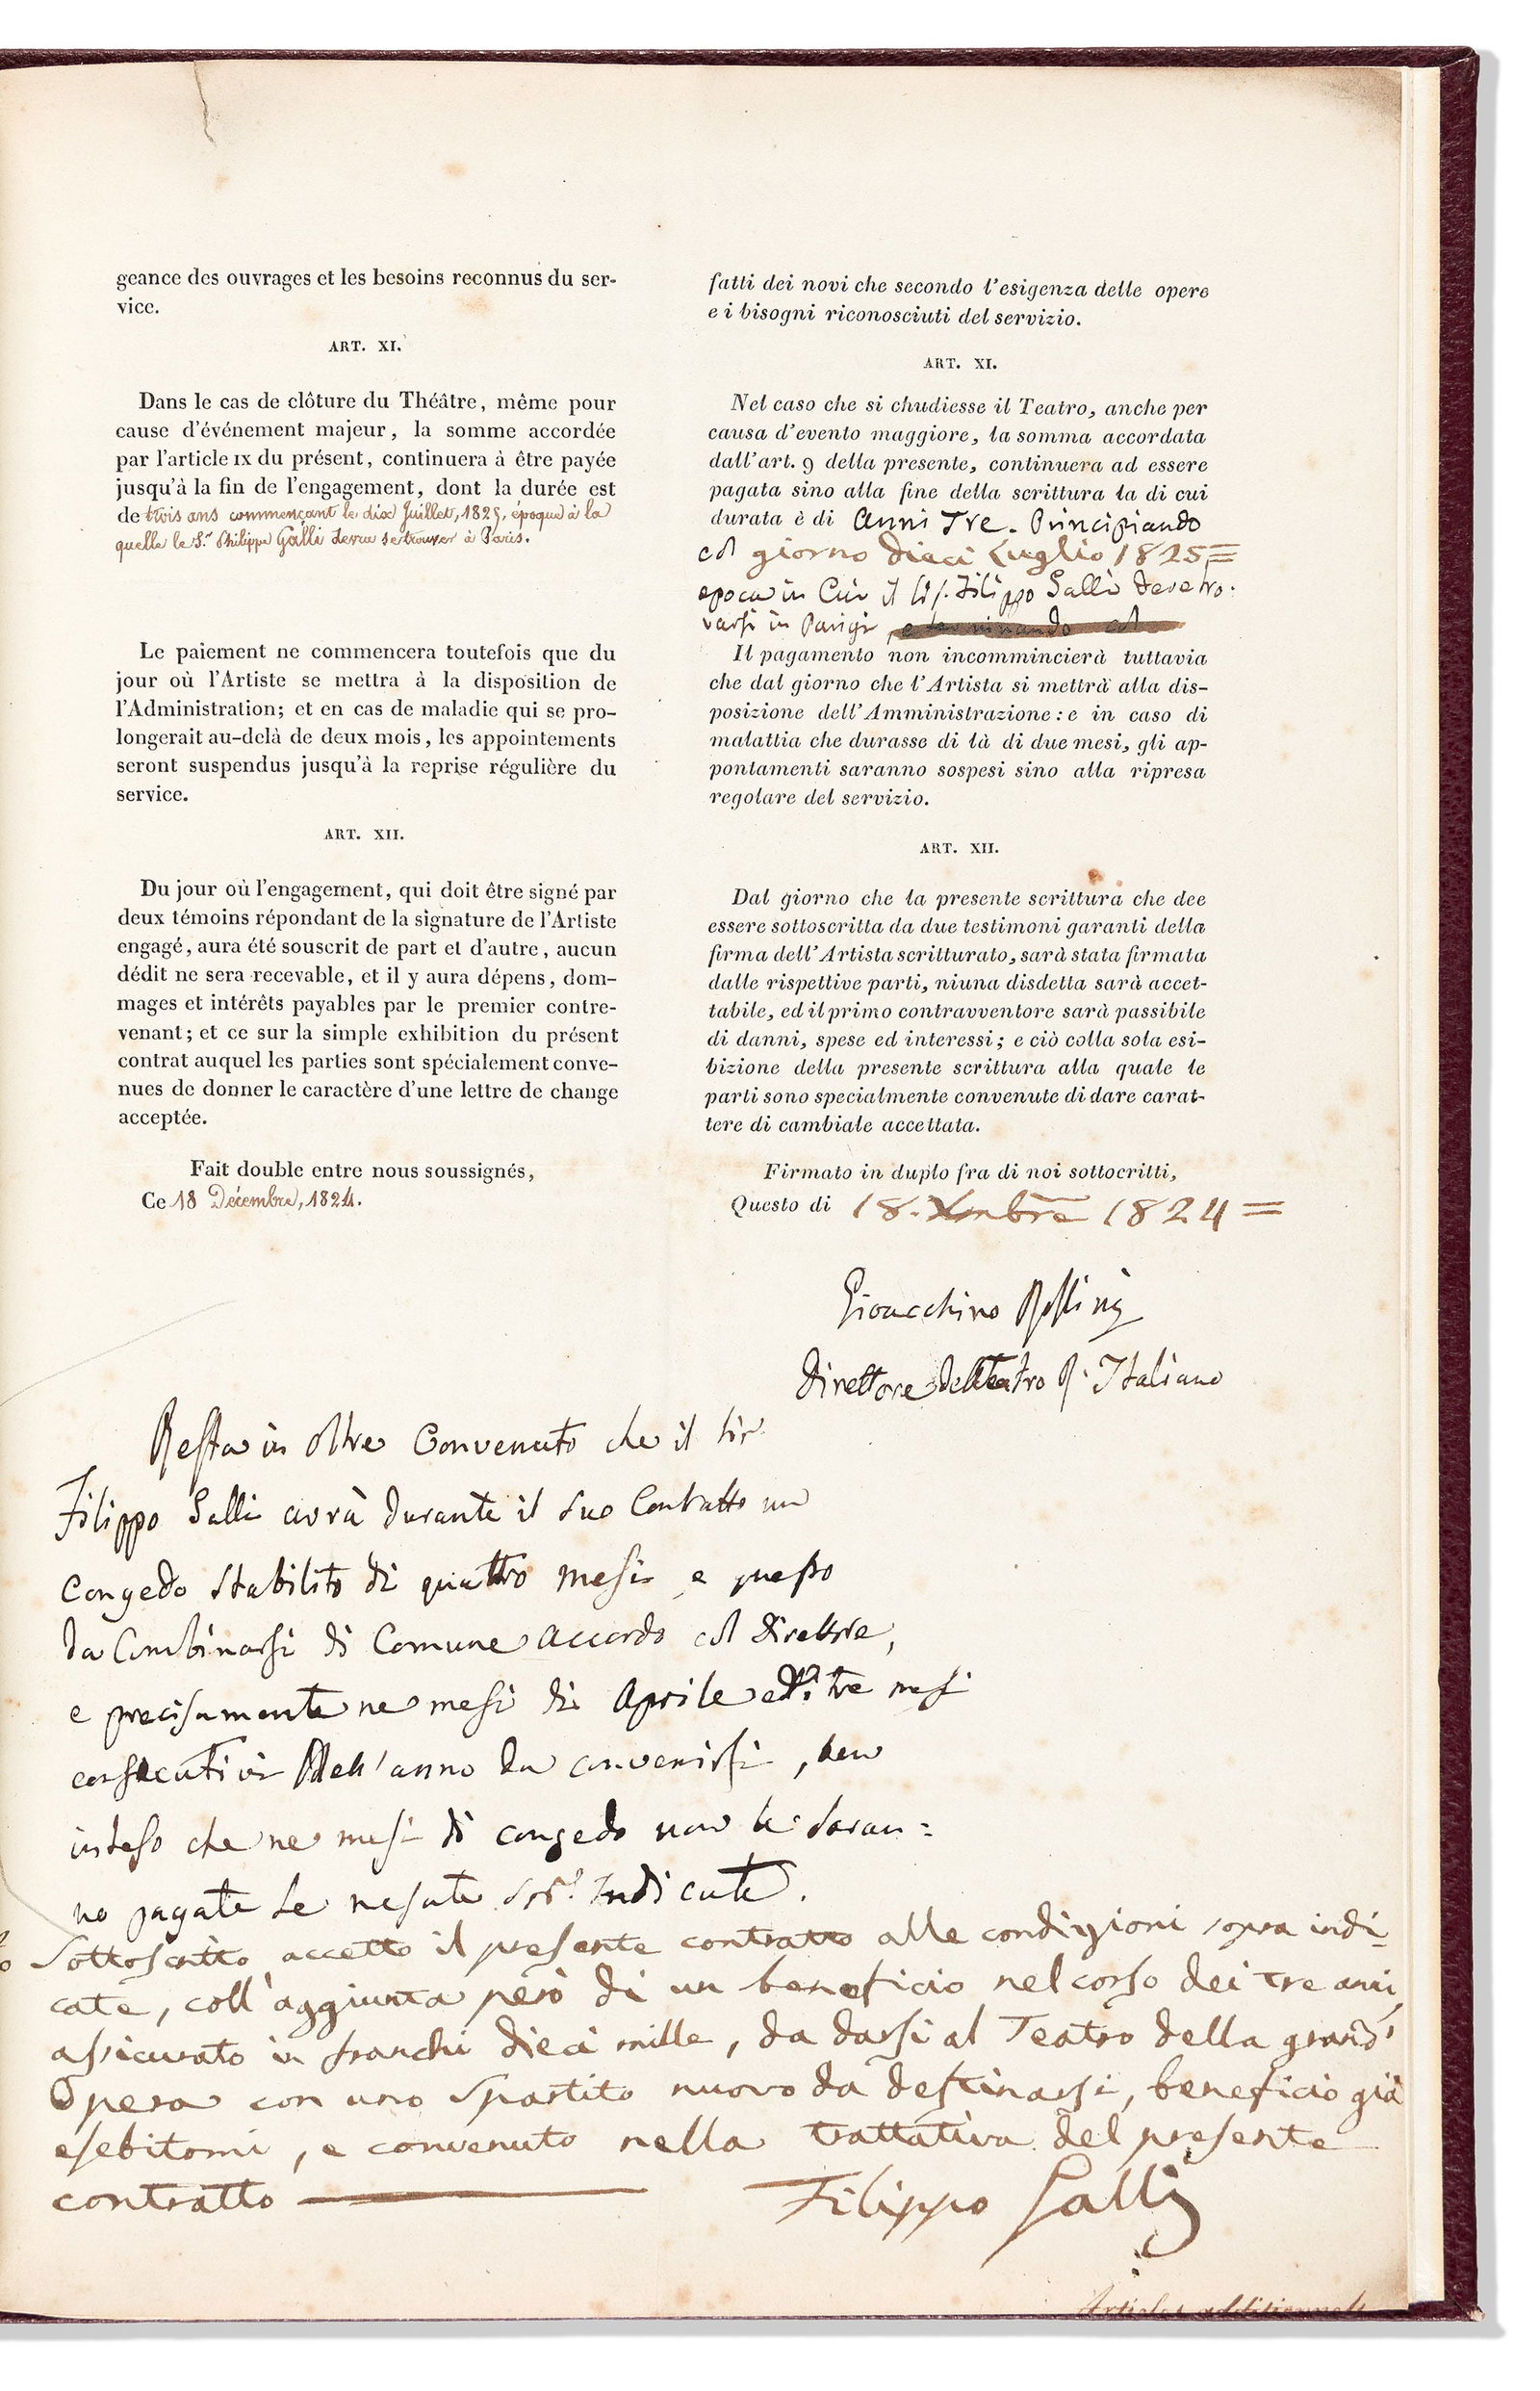 geance des ouvrages et les besoins reconnus du ser-
vice.
ART. XI.
Dans le cas de clôture du Théâtre, même pour
cause d'événement majeur, la somme accordée
par l'article IX du présent, continuera à être payée
jusqu'à la fin de l'engagement, dont la durée est
de trois ans commençant le dix Juillet, 1825, époque à la
quelle le S.r Philippe Galli devra se trouver à Paris.
Le paiement ne commencera toutefois que du
jour où l'Artiste se mettra à la disposition de
l'Administration; et en cas de maladie qui se pro-
longerait au-delà de deux mois, les appointements
seront suspendus jusqu'à la reprise régulière du
service.
ART. XII.
Du jour où l'engagement, qui doit être signé par
deux témoins répondant de la signature de l'Artiste
engagé, aura été souscrit de part et d'autre, aucun
dédit ne sera recevable, et il y aura dépens, dom-
mages et intérêts payables par le premier contre-
venant; et ce sur la simple exhibition du présent
contrat auquel les parties sont spécialement conve-
nues de donner le caractère d'une lettre de change
acceptée.
Fait double entre nous soussignés,
Ce 18 Décembre, 1824.
fatti dei novi che secondo l'esigenza delle opere
e i bisogni riconosciuti del servizio.
ART. XI.
Nel caso che si chudiesse il Teatro, anche per
causa d'evento maggiore, la somma accordata
dall'art. 9 della presente, continuera ad essere
pagata sino alla fine della scrittura la di cui
durata è di Anni Tre. Principiando
col giorno Dieci Luglio 1825=
epoca in Cui il Sig. Filippo Galli deve tro-
varsi in Parigi, e terminando col
Il pagamento non incommincierà tuttavia
che dal giorno che l'Artista si mettrà alla dis-
posizione dell'Amministrazione: e in caso di
malattia che durasse di là di due mesi, gli ap-
pontamenti saranno sospesi sino alla ripresa
regolare del servizio.
ART. XII.
Dal giorno che la presente scrittura che dee
essere sottoscritta da due testimoni garanti della
firma dell'Artista scritturato, sarà stata firmata
dalle rispettive parti, niuna disdetta sarà accet-
tabile, ed il primo contravventore sarà passibile
di danni, spese ed interessi; e ciò colla sola esi-
bizione della presente scrittura alla quale le
parti sono specialmente convenute di dare carat-
tere di cambiale accettata.
Firmato in duplo fra di noi sottocritti,
Questo di 18. Xmbre 1824=
Gioacchino Rossini
Direttore del Teatro R. Italiano
Resta in oltre Convenuto che il Sir
Filippo Galli avrà durante il suo Contratto un
Congedo stabilito di quattro mesi e questo
da Combinarsi di Comune accordo col Direttore,
e precisamente ne mesi di Aprile e di tre mesi
consecutivi dell'anno da convenirsi, ben
inteso che ne mesi di congedo non le saran=
no pagate Le mesate Indicate.
Sottoscritto accetto il presente contratto alle condizioni sopra indi=
cate, coll'aggiunta però di un beneficio nel corso dei tre anni,
assicurato in franchi dieci mille, da darsi al Teatro della grand'
Opera con uno Spartito nuovo da destinarsi, beneficio già
esebitomi, e convenuto nella trattativa del presente
contratto
Filippo Galli
Articles additionnels